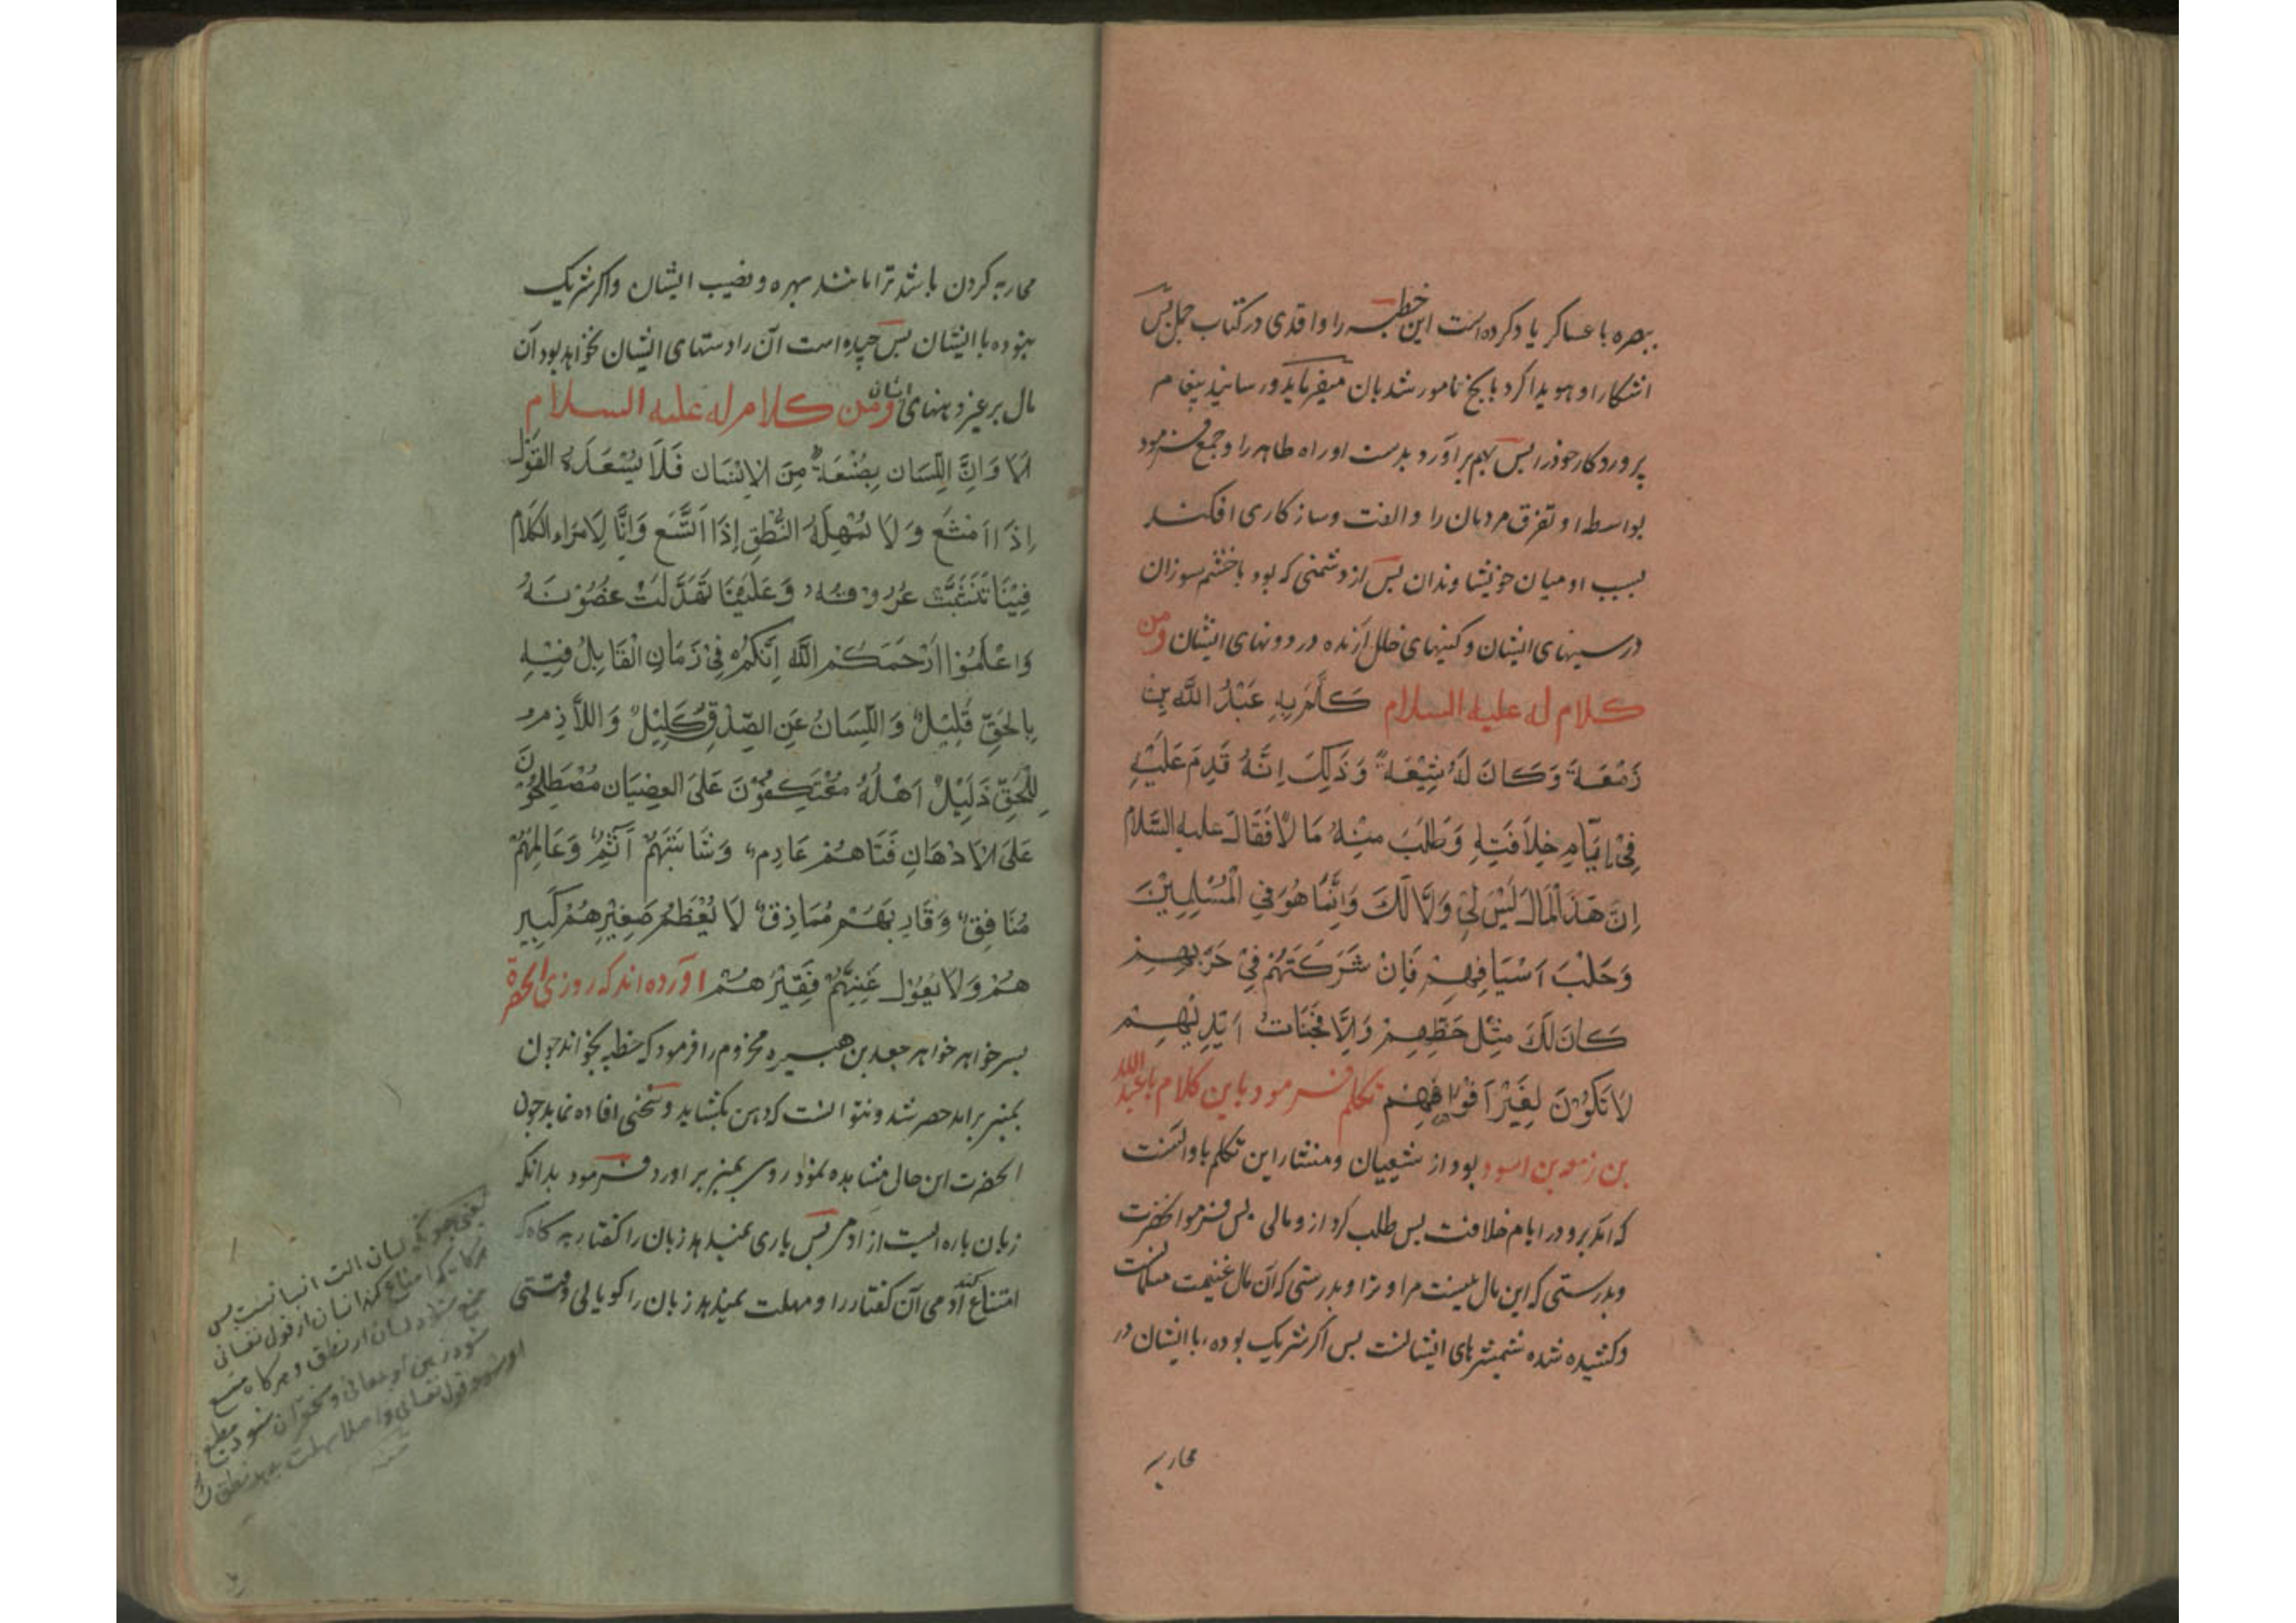 ببصره با عساکر یاد کرده است این خطبه را واقدی در کتاب جمل پس
اشکارا و هویدا کرد بانچ نامور شد بان میفرماید و رسانید پیغام
پروردکار خود را پس بهم بر آورد بدست او راه طاهر را و جمع فرمود
بواسطه او تفرق مردمان را و الفت و سازکاری افکند
بسبب او میان خویشاوندان پس از دشمنی که بود با خشم سوزان
در سینهای ایشان و کینهای خلل آرنده در دونهای ایشان ومن
کلام له علیه السلام کَلَّمَ بِهِ عَبْدُ اللَّه بن
زَمْعَةَ وَکَانَ لَهُ شِیْعَةً وَذَلِکَ اِنَّهُ قَدِمَ عَلَیْهِ
فِیْ اَیَّامِ خِلاَفَتِهِ وَطَلَبَ مِنْهُ مَالاً فَقَالَ علیه السَّلام
اِنَّ هَذَ الْمَالَ لَیْسَ لِیْ وَلَا لَکَ وَاِنَّمَا هُوَ فِی الْمُسْلِمِیْنَ
وَجَلْبَ اَسْیَافِهِمْ فَاِنْ شَرَکْتَهُمْ فِیْ حَرْبِهِمْ
کَانَ لَکَ مِثْلُ حَظِّهِمْ وَاِلَّا فَجَنَاتُ اَیْدِیْهِمْ
لاَ تَکُوْنَ لِغَیْرِ اَفْوَاهِهِمْ تکلم فرمود باین کلام با عبد الله
بن زمعه بن اسود بود از شعییان و منشا این تکلم با و انست
که امد برو در ایام خلافت پس طلب کرد ازو مالی پس فرموانحضرت
و بدرستی که این مال نیست مرا و ترا و بدرستی که آن مال غنیمت مسلمانانست
و کشیده شده شمشرهای ایشانست پس اکر شریک بوده، با ایشان در
محاربه
محاربه کردن باشد ترا مانند بهره و نصیب ایشان و اکر شریک
بنوده با ایشان پس چیده است آن را دستهای ایشان نخواهد بود آن
مال بر غیر دهنهای ایشان ومن کلام له علیه السلام
اَلاَ وَاِنَّ اللِّسَان بِضْعَةٌ مِنَ الاِنْسَان فَلاَ یُسْعَدُهُ القَوْلُ
اِذَا اَمْتَنَعَ وَ لاَ یُمْهِلُهُ النُّطْقِ اِذَا اَتَّسَع وَاِنَّا لِاَمَرَاء الکَلاَم
فِیْنَا تَنَشَّبَتْ عُرُوْقُهُ وَعَلَیْنَا تَهَدَّلَتْ غُصُوْنُهُ
وَاعْلَمُوْا اَرْحَمَکُمْ اللَّه اِنَّکُمْ فِیْ زَمَانٍ الْقَایِلُ فِیْهِ
بِالْحَقِّ قَلِیْلٌ وَ اللِّسَانُ عَنِ الصِّدْقِ کَلِیْلٌ وَ اللاَّذِمُ
لِلْحَقِّ ذَلِیْلٌ اَهْلُهُ مُعْتَکِفُوْنَ عَلَی العِصْیَان مُصْطَلِحُوْنَ
عَلَی الاِدْهَانِ فَتَاهُمْ عَارِمٌ وَشَائِبُهُمْ آثِمٌ وَعَالِمُهُمْ
مُنَافِقٌ وَقَارِبُهُمْ مُمَاذِقٌ لاَ یُعْظِمُ صَغِیْرُهُمْ کَبِیر
هُمْ وَلاَ یَعُوْلُ غَنِیُّهُمْ فَقِیْرَهُمْ اورده اند که روزی انحضرة
پسر خواهر خواهر جعد بن هبیره مخزوم را فرمود که خطبه بخواند چون
بمنبر برامد حصر شد و نتوانست که دهن بکشاید و سخنی افاده نماید چون
انحضرت این حال مشاهده نمود روی بمنبر بر اورد و فرمود بدانکه
زبان پاره ایست از ادمی پس یاری نمیدهد زبان را کفتار به کاه که
امتناع کند آدمی آن کفتار را و مهلت نمیدهد زبان را کویایی وقتی
یعنی چونکه لسان الت انسانست پس
هرکاه که امتناع کند انسان از قول نفسانی
منع شود لسان از نطق و هرکاه متسع